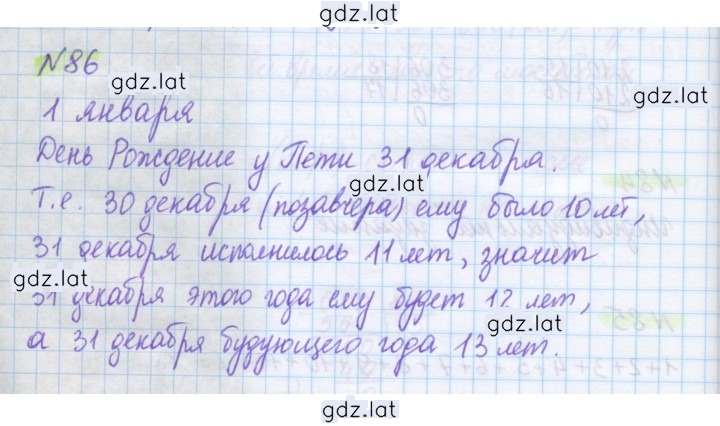 gdz.lat
N86
gdz.lat
1 января
День Рождение у Пети 31 декабря.
gdz.lat
Т.е. 30 декабря (позавчера) ему было 10 лет,
31 декабря исполнилось 11 лет, значит
gdz.lat
31 декабря этого года ему будет 12 лет,
gdz.lat
а 31 декабря будующего года 13 лет.
gdz.lat